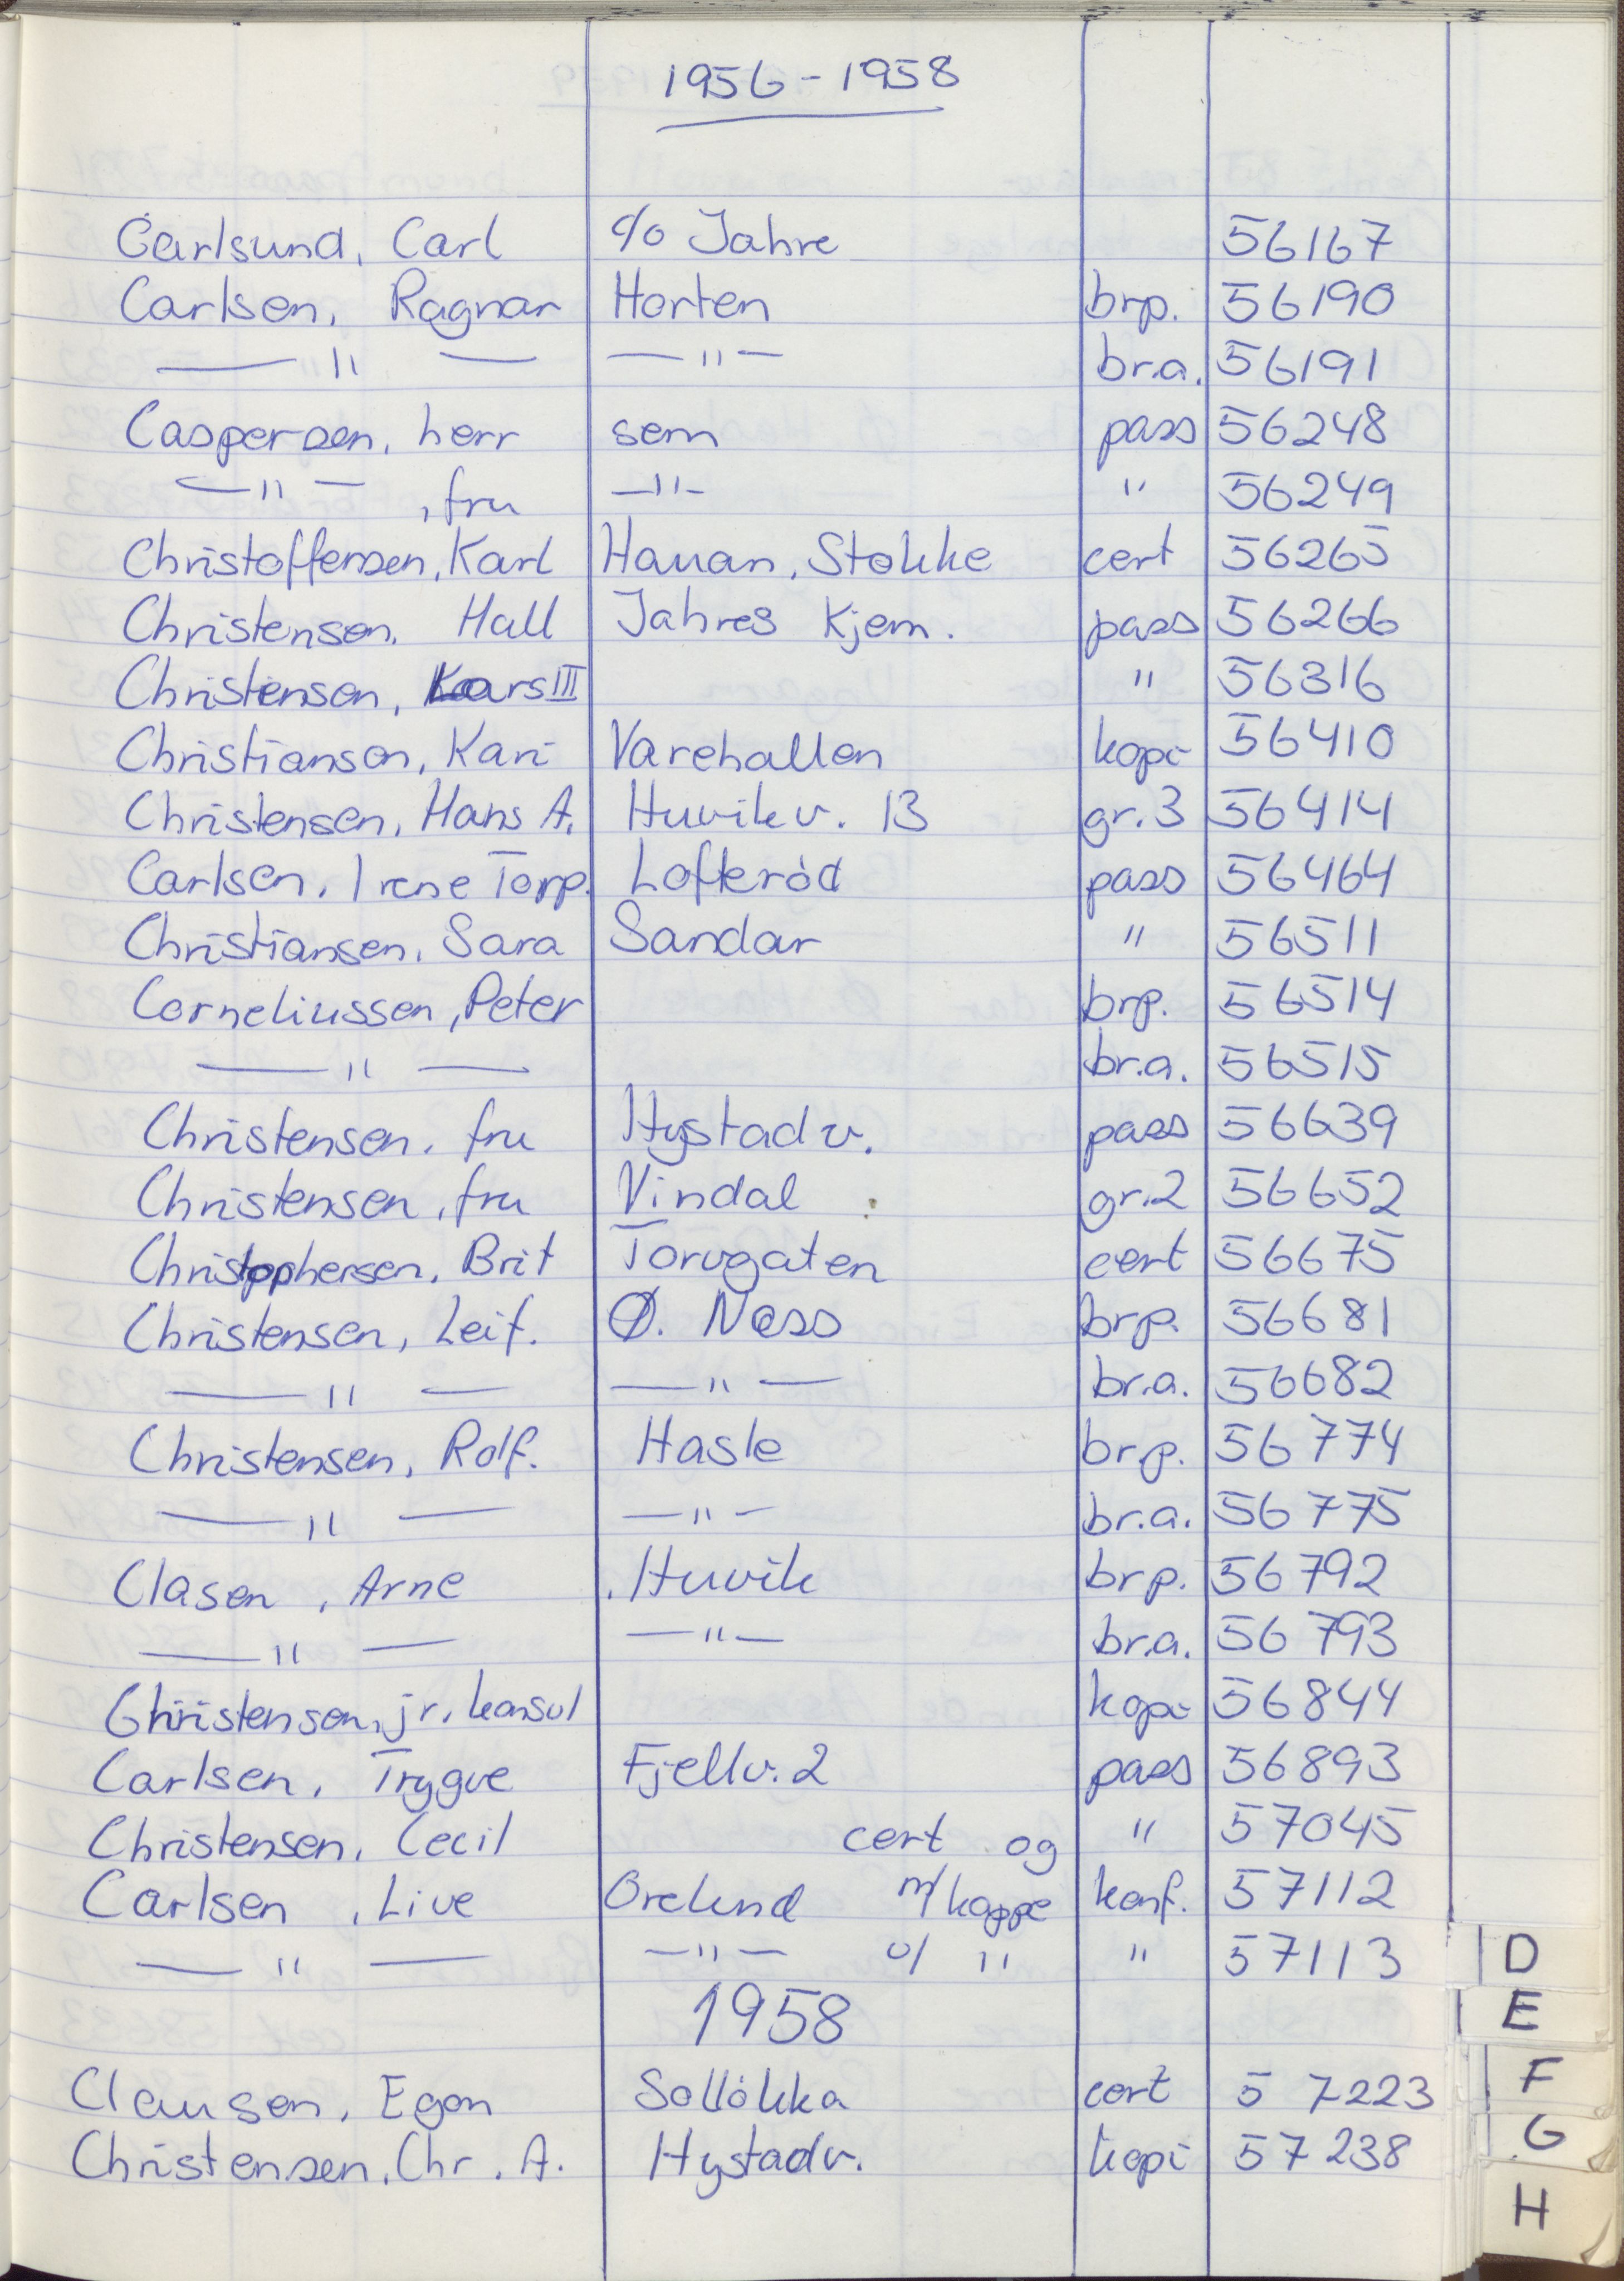 1956 - 1958
Carlsund, Carl c/o Jahre 56167
Carlsen, Ragnar Horten brp. 56190
— " — — " — br.a. 56191
Caspersen, herr sem pass 56248
— " — , fru — " — " 56249
Christoffersen, Karl Hauan, Stokke cert 56265
Christensen, Hall Jahres Kjem. pass 56266
Christensen, Lars III " 56316
Christiansen, Kari Varehallen kopi 56410
Christensen, Hans A. Huvikv. 13 gr.3 56414
Carlsen, Irene Torp. Lofterød pass 56464
Christiansen, Sara Sandar " 56511
Corneliussen, Peter brp. 56514
— " — br.a. 56515
Christensen, fru Hystadv. pass 56639
Christensen, fru Vindal gr.2 56652
Christophersen, Brit Torvgaten cert 56675
Christensen, Leif. Ø. Ness brp. 56681
— " — — " — br.a. 56682
Christensen, Rolf. Hasle brp. 56774
— " — — " — br.a. 56775
Clasen, Arne Huvik brp. 56792
— " — — " — br.a. 56793
Christensen, jr. konsul kopi 56844
Carlsen, Trygve Fjellv. 2 pass 56893
Christensen, Cecil cert og " 57045
Carlsen, Live Orelund m/ kappe konf. 57112
— " — — " — u/ " " 57113
D
1958
E
Clausen, Egon Solløkka cert 57223
F
Christensen, Chr. A. Hystadv. kopi 57238
G
H